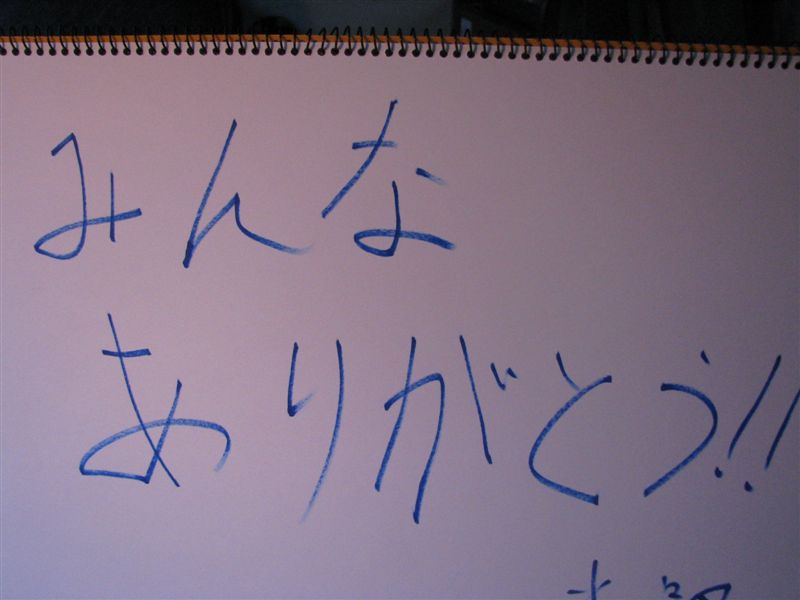 みんな
ありがとう!!